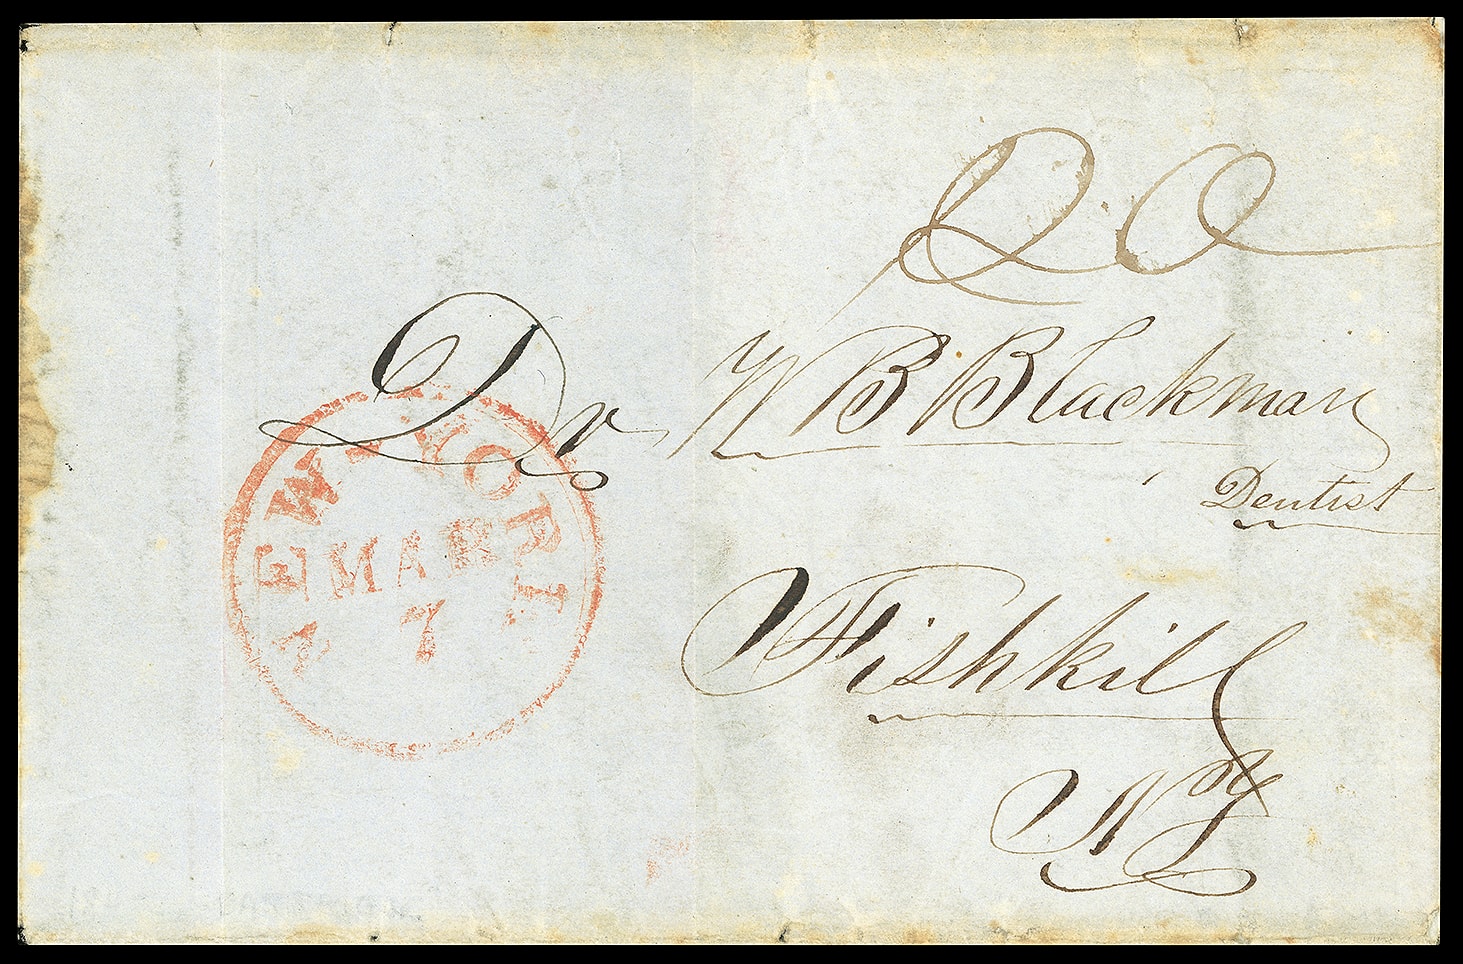 20
Dr W B Blackman
Dentist
Fishkill
NY
NEW-YORK
MAR
7